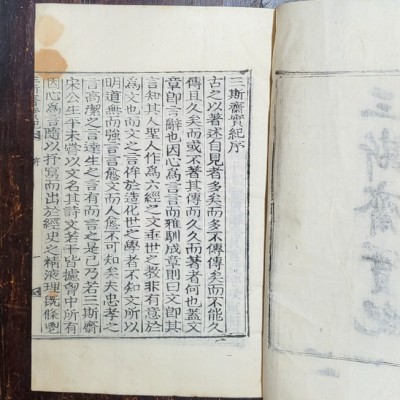 三斯齋實紀序
古之以著述自見者多矣而多不傳傳矣而不能久
傳且久矣而或不著其傳而久久而著者何也盖文
章卽言辭也因心爲言言而雅馴成章則曰文卽其
言知其人聖人作爲六經之文垂世之敎非有意於
爲文也而文之言侔於造化世之學者不知文所以
明道無而強言言愈文而人愈不可知矣夫忠孝之
言高潔之言達生之言有而言之是已乃若三斯齋
宋公生平未嘗以文名其詩文若干皆攄胷中所有
因心爲言隨以抒寫而出於經史之精液理旣條